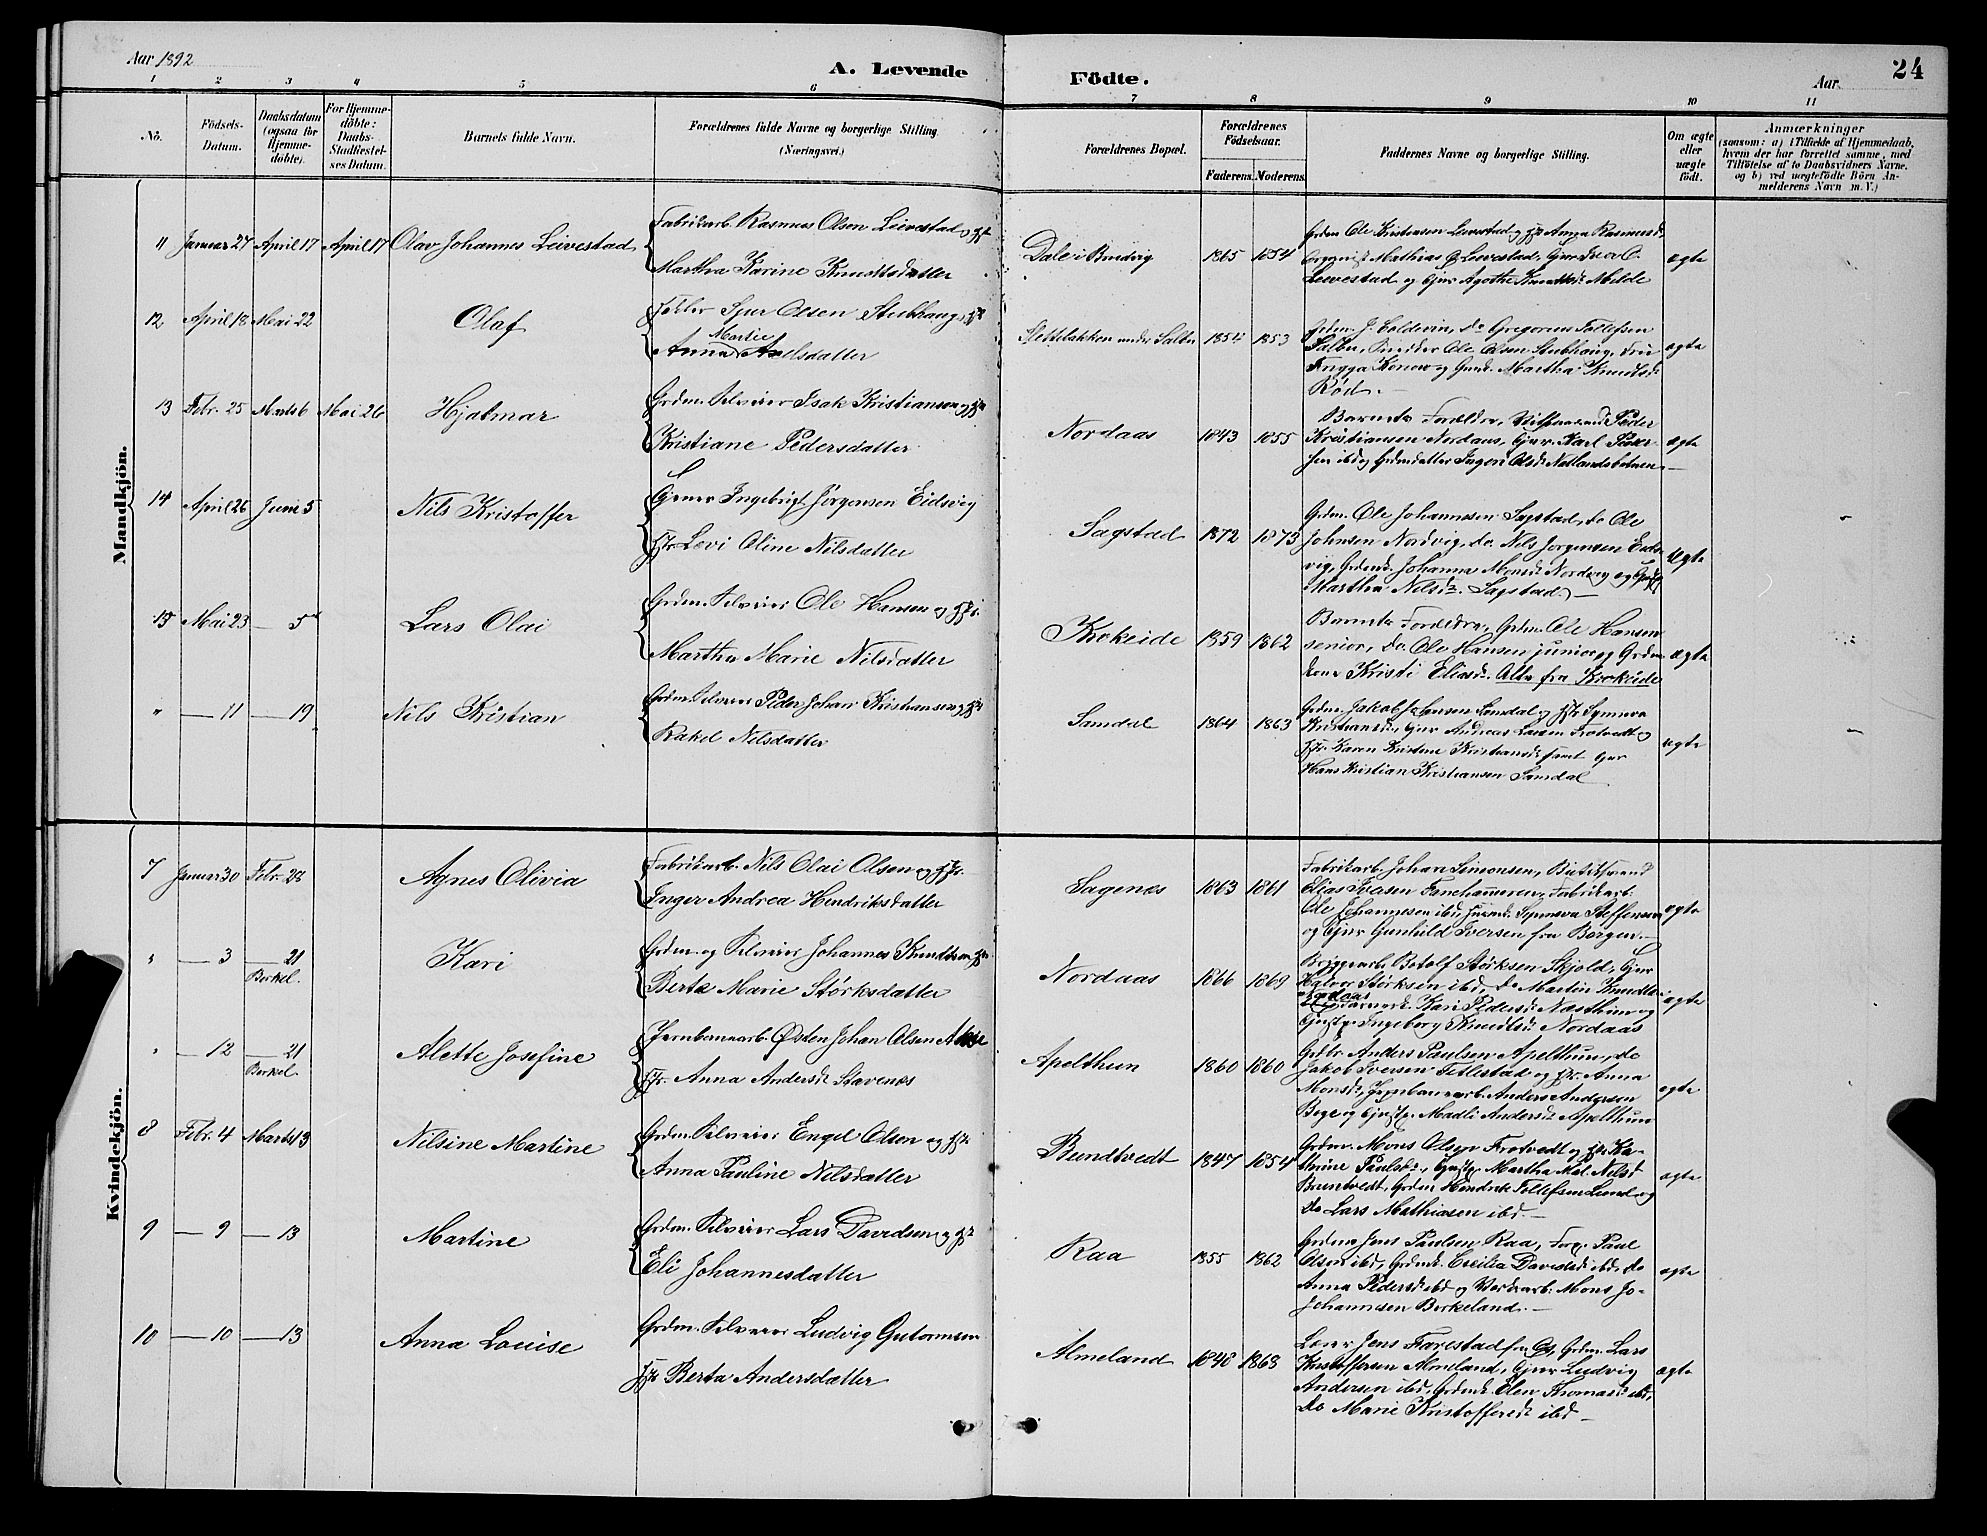 Aar 1892
A. Levende
Födte.
Aar
24
1 2 3 4 5 6 7 8 9 10 11
No.
Födsels-Datum.
Daabsdatum (ogsaa for Hjemme-döbte).
For Hjemme-döbte: Daabs-Stadfæstel-ses Datum.
Barnets fulde Navn.
Forældrenes fulde Navne og borgerlige Stilling (Næringsvei.)
Forældrenes Bopæl.
Forældrenes Födselsaar.
Faderens. Moderens.
Faddernes Navne og borgerlige Stilling.
Om ægte eller uægte födt.
Anmærkninger
(saasom: a) i Tilfælde af Hjemmedaab, hvem der har forrettet samme, med Tilföielse af to Daabsvidners Navne, og b) ved uægtefödte Börn An-melderens Navn m. V.)
Mandkjön.
11 Januar 27 April 17 April 17 Olav Johannes Leivestad
Fabrikarb. Rasmus Olsen Leivestad og
Martha Karine Knudtsdatter
Dale i Bruvig 1865 1854
Grdm. Ole Kristensen Leivestad og Anna Rasmusd.
Mathias O. Leivestad, Gjur
Leivestad og Gjur Agathe Knudtsd. Melde
ægte
12 April 18 Mai 22 Olaf
Sjur Olsen Stubhaug
Marthe
Anna Axelsdatter
under Salbu 1854 1853
Grdm. J. Coldevin, Do Gregorius Tollefsen
Salbu, Ole Olsen Stubhaug, Frue
Konow og Martha Knudtsd.
Rød.
ægte
13 Febr. 25 Marts 6 Mai 26 Hjalmar
Grdm. Selveier Isak Kristiansen og
Kristiane Pedersdatter
Nordaas 1843 1855
Barnets Forældre, Peder
Kristiansen Nordaas, Gjur Karl Peder-
sen ibd og Grdmdatter Ingeri Olsd. Natlandsbotnen
ægte
14 April 26 Juni 5 Nils Kristoffer
Gjener Ingebrigt Jörgensen Eidsvig
Lovi Oline Nilsdatter
Sagstad 1872 1873
Grdm. Ole Johannesen Sagstad, do Ole
Johnsen Nordvig, do. Nils Jorgensen Eids-
vig, Johanna Monsd. Nordvig og
Martha Nilsd. Sagstad
ægte
15 Mai 23 — 5 Lars Olai
Grdm. Selveier Ole Hansen og
Martha Marie Nilsdatter
Krokeide 1859 1862
Barnets Forældre, Grdm. Ole Hansen
senior, Do Ole Hansen junior og Grdm
kone Kristi Eliasd. Alle fra Krokeide
ægte
" — 11 — 19 Nils Kristian
Grdm. Selveier Peder Johan Kristiansen og
Rakel Nilsdatter
Samdal 1864 1863
Grdm. Jakob Larsen Samdal og Synneva
Kristiansd., Gjur Andreas Larsen Frotvedt og
Karen Kristine Kristiansd. samt Gjur
Hans Kristian Kristiansen Samdal
ægte
Kvindekjön.
7 Januar 30 Febr. 28 Agnes Olivia
Fabrikarb. Nils Olai Olsen og
Inger Andrea Hendriksdatter
Sagenes 1863 1861
Fabrikarb. Johan Simonsen,
Elias Fanehammeren, Fabrikarb.
Ole Johannesen ibd, Synneva Steffensen
og Gjur Gunhild Iversen fra Bergen.—
ægte
" — 3 — 21 Kari
Berkel.
Grdm. og Selveier Johannes Knudtsen
Berta Marie Störksdatter
Nordaas 1866 1869
Bryggearb. Botolf Störksen Skjold, Gjur
Halvor Störksen ibd, Do Martin Knudtsen
Nordaas
Kari Pedersd. Næsthun og
Ingeborg Knudtsd. Nordaas
ægte
" — 12 — 21 Alette Josefine
Berkel.
Jernbanearb. Østen Johan Olsen
Anna Andersd. Stavenes
Apelthun 1860 1860
Anders Paulsen Apelthun, do
Jakob Iversen Titlestad og Anna
Monsd., Jernbanearb. Anders Andersen
Boge og Madli Andersd. Apelthun
ægte
8 Febr. 4 Marts 13 Nilsine Martine
Grdm. Selveier Engel Olsen og
Anna Pauline Nilsdatter
Bundtvedt 1847 1854
Grdm. Mons Olsen Frotvedt og Ka-
thrine Paulsd., Martha Mal. Nilsd
Buntvedt, Grdm Hendrik Tollefsen Lund og
Do Lars Mathiasen ibd.—
ægte
9 — 9 — 13 Martine
Grdm. Selveier Lars Davidsen og
Eli Johannesdatter
Raa 1855 1862
Grdm. Jens Paulsen Raa, Paul
Olsen ibd, Cecilia Davidsd. ibd, do
Anna Pedersd. ibd og Mons Jo-
Johannesen Borkeland.—
ægte
10 — 10 — 13 Anna Louise
Grdm. Selveier Ludvig Gutormsen
Berta Andersdatter
Almeland 1848 1863
Jens Farestad Grdm. Lars
Kristoffersen Almeland, Gjur Ludvig
Andersen ibd, Olen Thomasd. ibd,
Do Marie Kristoffersd. ibd—
ægte